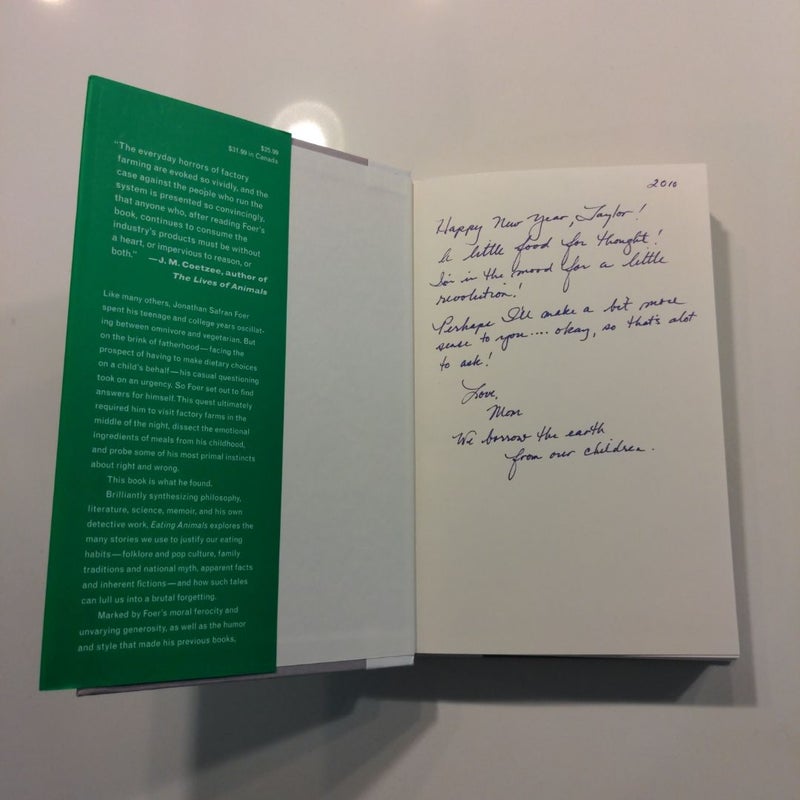 $25.99
$31.99 in Canada
"The everyday horrors of factory
farming are evoked so vividly, and the
case against the people who run the
system is presented so convincingly,
that anyone who, after reading Foer's
book, continues to consume the
industry's products must be without
a heart, or impervious to reason, or
both."
—J. M. Coetzee, author of
The Lives of Animals
Like many others, Jonathan Safran Foer
spent his teenage and college years oscillat-
ing between omnivore and vegetarian. But
on the brink of fatherhood—facing the
prospect of having to make dietary choices
on a child's behalf—his casual questioning
took on an urgency. So Foer set out to find
answers for himself. This quest ultimately
required him to visit factory farms in the
middle of the night, dissect the emotional
ingredients of meals from his childhood,
and probe some of his most primal instincts
about right and wrong.
This book is what he found.
Brilliantly synthesizing philosophy,
literature, science, memoir, and his own
detective work, Eating Animals explores the
many stories we use to justify our eating
habits—folklore and pop culture, family
traditions and national myth, apparent facts
and inherent fictions—and how such tales
can lull us into a brutal forgetting.
Marked by Foer's moral ferocity and
unvarying generosity, as well as the humor
and style that made his previous books,
2010
Happy New Year, Taylor!
A little food for thought!
I'm in the mood for a little
revolution!
Perhaps I'll make a bit more
sense to you.... okay, so that's alot
to ask!
Love,
Mom
We borrow the earth
from our children.